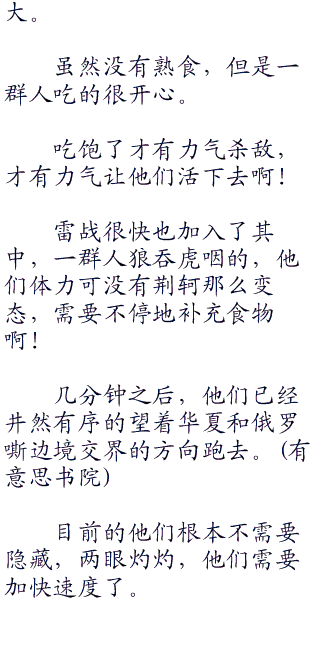 大。
虽然没有熟食，但是一
群人吃的很开心。
吃饱了才有力气杀敌，
才有力气让他们活下去啊！
雷战很快也加入了其
中，一群人狼吞虎咽的，他
们体力可没有荆轲那么变
态，需要不停地补充食物
啊！
几分钟之后，他们已经
井然有序的望着华夏和俄罗
嘶边境交界的方向跑去。(有
意思书院)
目前的他们根本不需要
隐藏，两眼灼灼，他们需要
加快速度了。